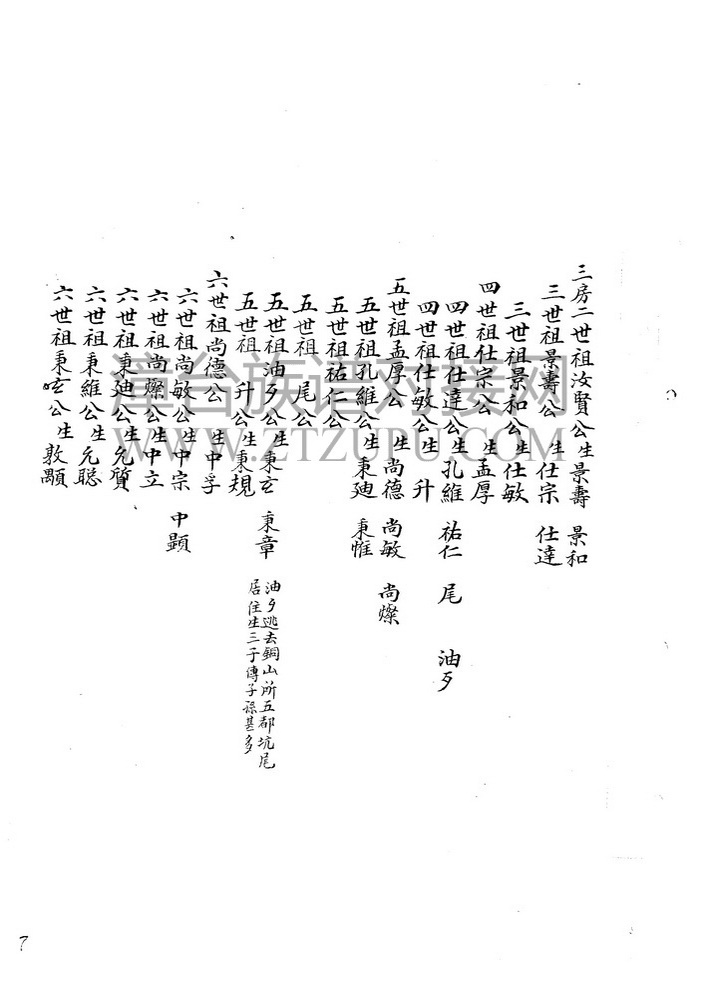 三房二世祖汝賢公生景壽 景和
三世祖景壽公生仕宗 仕達
三世祖景和公生仕敏
四世祖仕宗公生孟厚
四世祖仕達公生孔維 祐仁 尾 油歹
四世祖仕敏公生升
五世祖孟厚公生尚德 尚敏 尚燦
五世祖孔維公生秉廸 秉惟
五世祖祐仁公
五世祖尾公
五世祖油歹公生秉玄 秉章 油歹逃去銅山所五都坑尾
居住生三子傳子孫甚多
五世祖升公生秉規
六世祖尚德公生中孚
六世祖尚敏公生中宗 中顯
六世祖尚燦公生中立
六世祖秉廸公生允質
六世祖秉維公生允聪
六世祖秉玄公生敦顯
漳台族谱对接网
WWW.ZTZUPU.COM
7